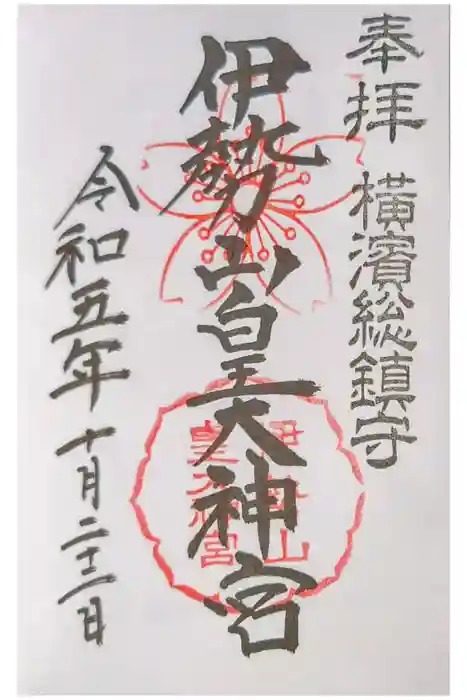 奉拝 横濱総鎮守
伊勢山皇大神宮
伊勢山
皇大神宮
令和五年十月二十二日